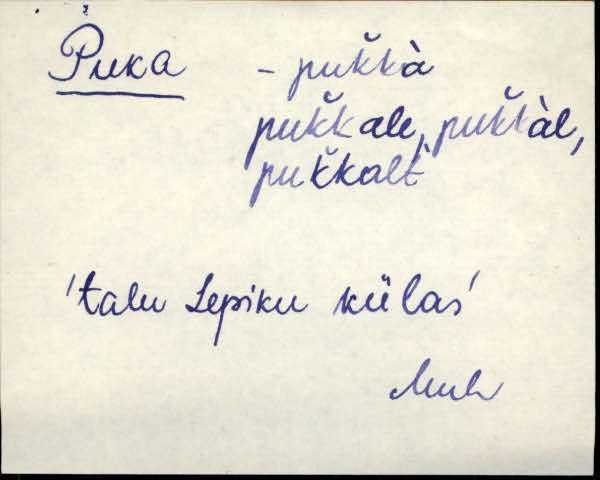 Puka - puk̆kà
puk̆kale, puk̆kàl,
puk̆kalt
'talu Lepiku külas'
Muh